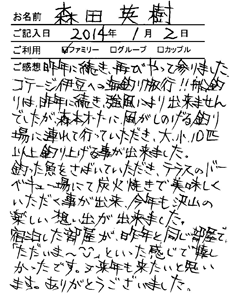 お名前 森田英樹
ご記入日 2014年 1月 2日
ご利用 ☑ファミリー □グループ □カップル
ご感想 昨年に続き、再びやって参りました、
コテージ伊豆へ海釣り旅行!!船釣
りは、昨年に続き、強風により出来ません
でしたが、森本オーナーに、風がしのげる釣り
場に連れて行っていただき、大、小、10匹
以上釣り上げる事が出来ました。
釣った魚をさばいていただき、テラスのバー
ベキュー場にて炭火焼きで美味しく
いただく事が出来、今年も沢山の
楽しい想い出が出来ました。
宿泊した部屋が、昨年と同じ部屋で、
「ただいま〜♡」といった感じで嬉し
かったです。又来年も来たいと思い
ます。ありがとうございました。